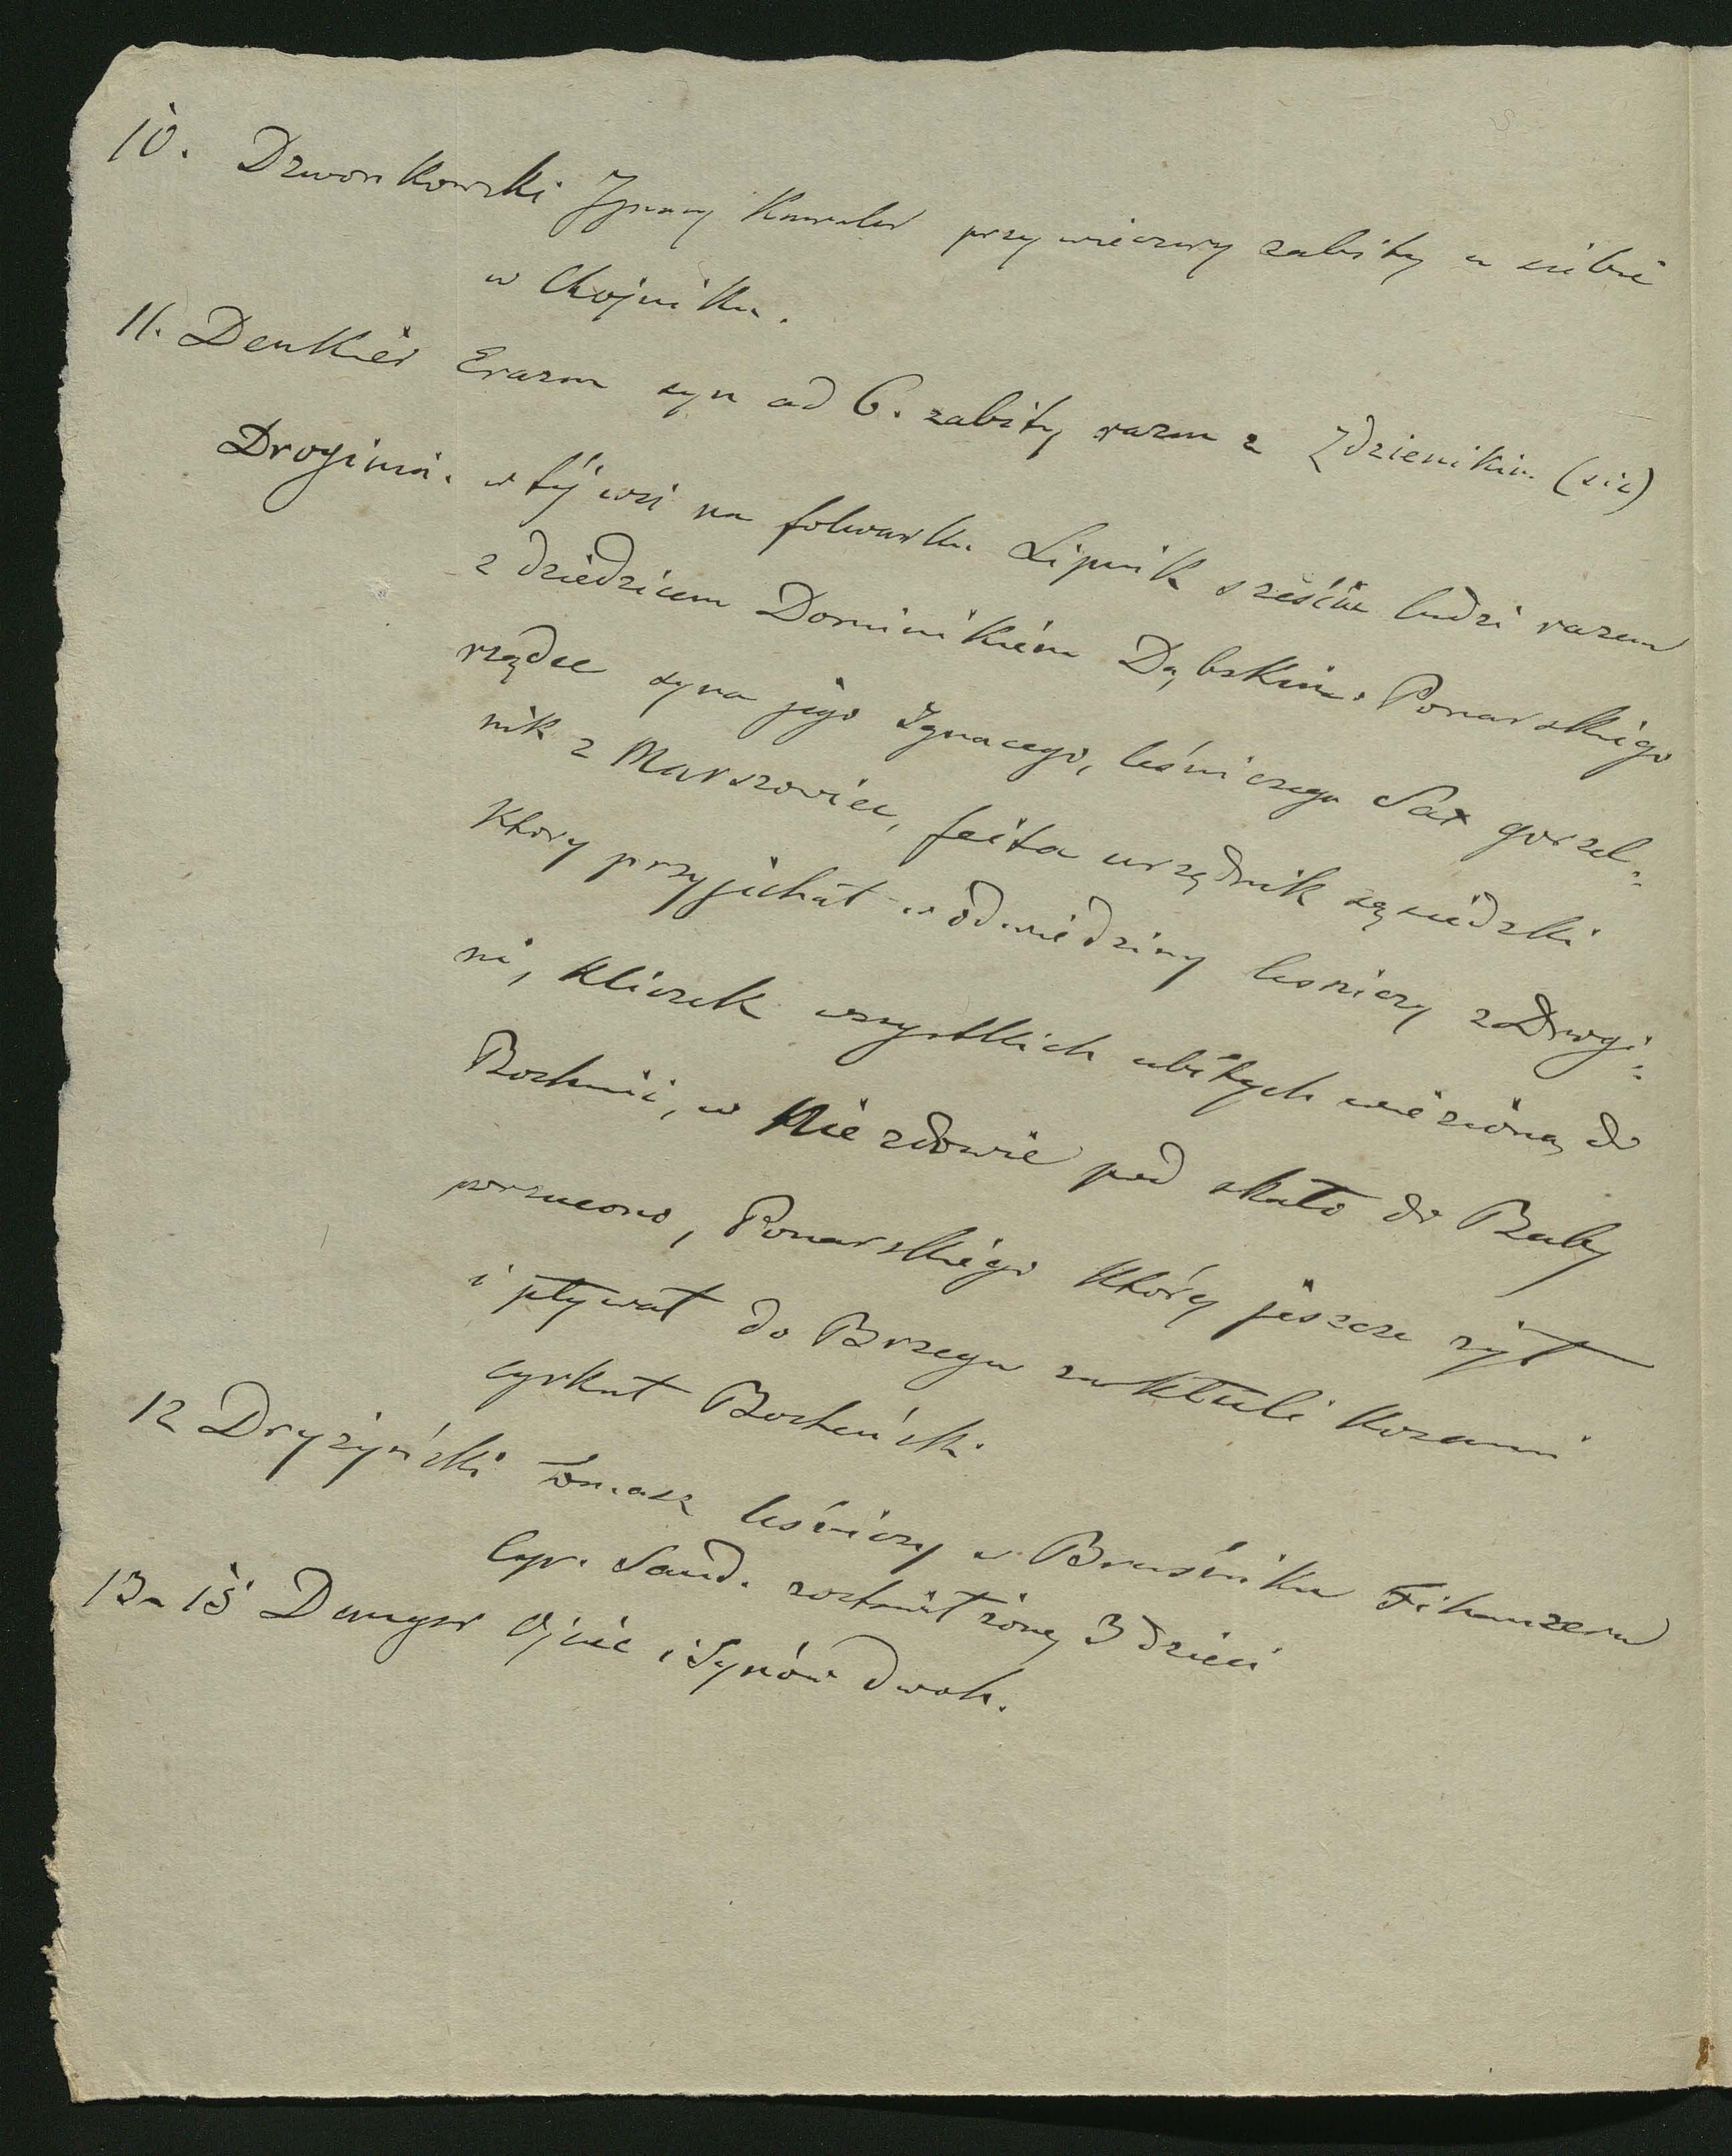 10. Dzwonkowski Ignacy Kawaler przy wieczerzy zabity u siebie
w Chojniku.
11. Denkier Erazm syn ad 6. zabity razem z Zdzienikim (sic)
Droginia. w téj wsi na folwarku Lipnik sześciu ludzi razem
z dziedzicem Dominikiem Dąbskim. Ponarskiego
rządce syna jego Ignacego, leśniczego Sax gorzel=
nik z Marszowiec, feita urzędnik sąsiedzki
który przyjechał w odwiedziny leśniczy z Drogi=
ni, Kliczek wszystkich ubitych wieziono do
Bochnii, w Niezdowie pod skałą do Raby
porzucono, Ponarskiego który jeszcze żył
i pływał do Brzegu zakłuli kosami
cyrkuł Bocheński
12 Dryżyński Tomasz leśniczy w Bruśniku Fihauzera
Cyr. Sand. zostawił żonę 3 dzieci
13-15 Ojciec i Synów dwoch.